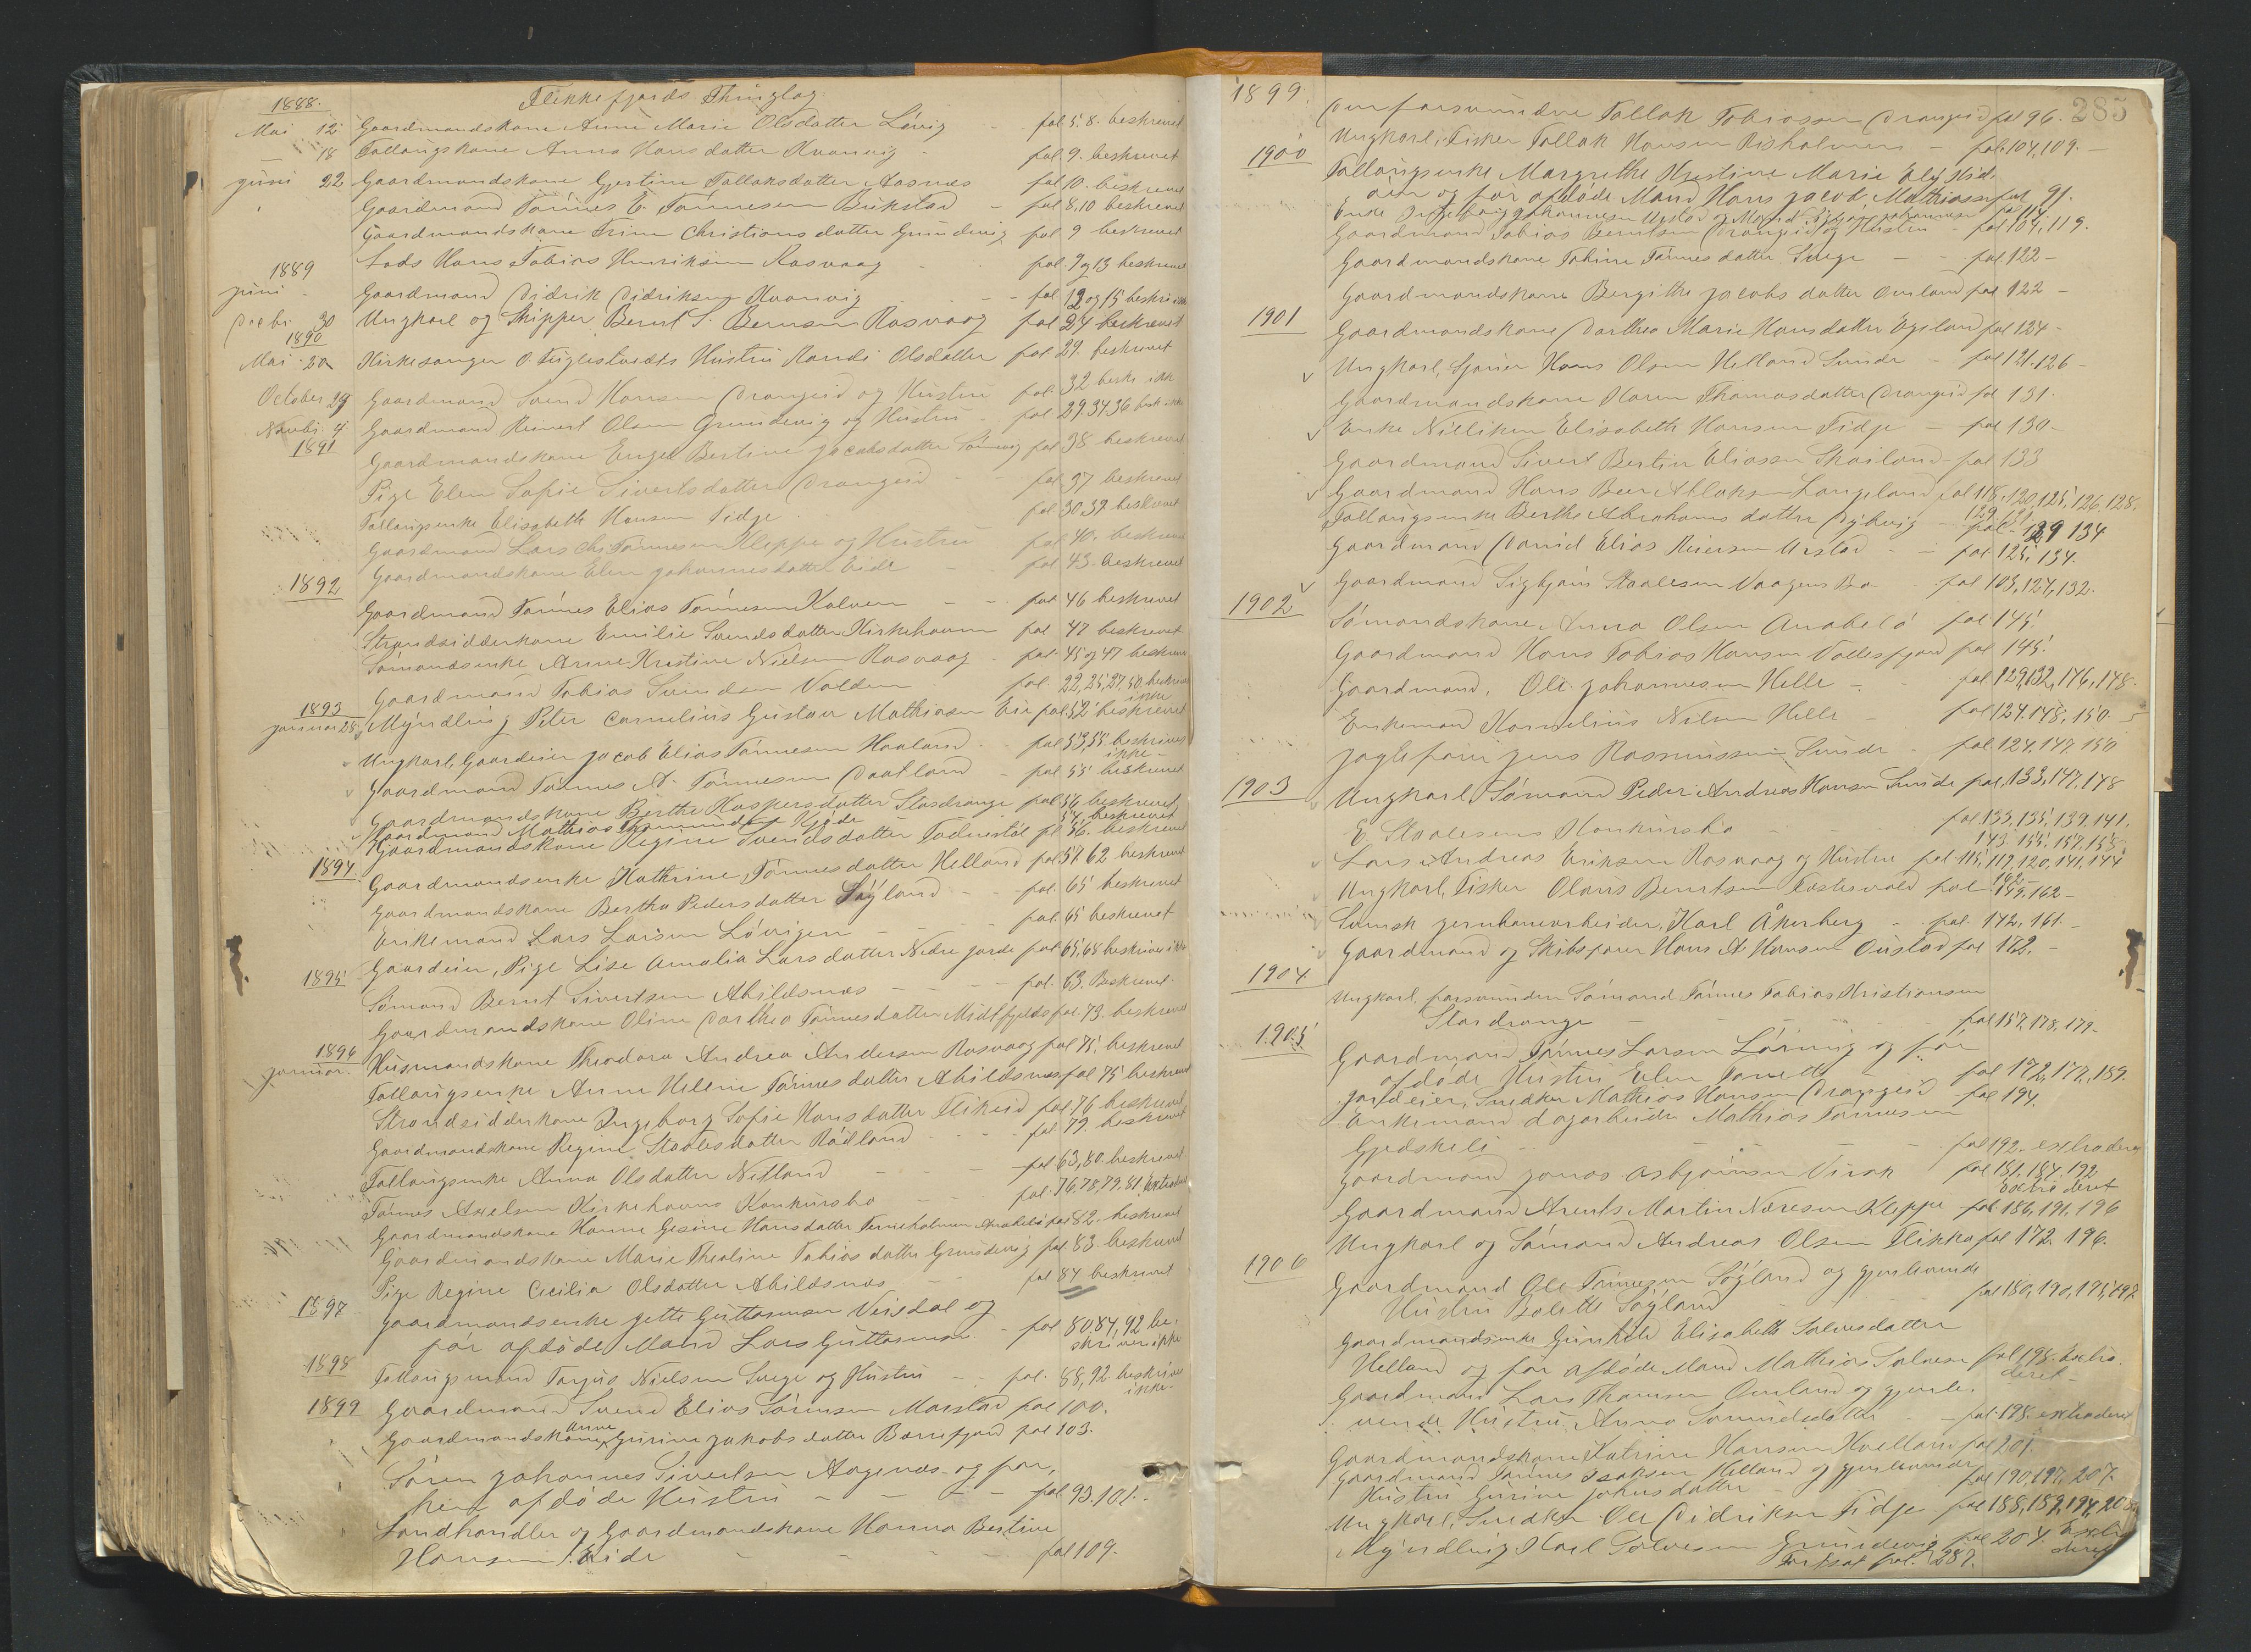 1888. Flekkefjords Thinglag
Mai 12 Gaardmandskone Anne Marie Olsdatter Lövig fol 5. 8. beskrevet
— 18 Fattangskone Anna Hansdatter Kvanvig fol. 9. beskrevet
Juni 22 Gaardmandskone Gjertine Tallaksdatter Aasnæs fol 10. beskrevet
Gaardmand Tønnes E. Tønnesen Birkeland fol 8,10 beskrevet
Gaardmandskone Trine Christiansdatter Grundevig fol 9 beskrevet
Lods Hans Tobias Henriksen Rasvaag fol. 9 og 13 beskrevet
1889
Juni Gaardmand Didrik Didriksen Kvanvig fol 12 og 15 beskr ikke
Decbr. 30 Ungkarl og Skipper Bernt S. Bernsen Rasvaag fol 24 beskrevet
1890
Mai 20 Kirkesanger O. Fuglestvedts Hustru Randi Olsdatter fol 29. beskrevet
October 29 Gaardmand Svend Hansen Drangeid og Hustru fol 32 beskr ikke
Novbr. 4 Gaardmand Reinert Olsen Grundevig og Hustru fol 29.34.36 besk ikke
1891 Gaardmandskone Engel Bertine Jacobsdatter fol 38 beskrevet
Pige Elen Sofie Sivertsdatter Drangeid fol 37 beskrevet
Elisabeth Hansen Fidje fol 30.39 beskrevet
Gaardmand Lars Chr. Tønnesen Kleppe og Hustru fol 40. beskrevet
Gaardmandskone Elen Johannesdatter Eide fol 43. beskrevet
1892 Gaardmand Tønnes Elias Tønnesen Kalven fol 46 beskrevet
Strandsidderkone Emilie Svendsdatter Kirkehavn fol 47 beskrevet
Sömandsenke Anne Kristine Nielsen Rasvaag fol 45 og 47 beskrevet
Gaardmand Tobias Svendsen Valden fol. 22,25,27,50 beskrevet
1893 ikke
Januar 28 Myndling Peter Cornelius Gustav Mathiasen Eie fol 52 beskrevet
Ungkarl, Gaardeier Jacob Elias Tønnesen Haaland fol 53,55. beskrives
ikke
Gaardmand Tönnes A. Tönnesen Daatland fol 55 beskrevet
Gaardmandskone Berthe Kaspersdatter Stordrange fol 56 beskrevet
Gaardmand Mathias 54 beskrevet
Gaardmandskone Regine Svendsdatter fol 56. beskrevet
1894 Gaardmandsenke Kathrine Tönnesdatter Helland fol 57.62 beskrevet
Gaardmandskone Bertha Pedersdatter Lögland fol. 65 beskrevet
Enkemand Lars Larsen Lövigen fol. 65 beskrevet
Gaardeier, Pige Lise Amalia Larsdatter Nedre Jorde fol 65,68 beskrives ikke
1895 Sömand Bernt Sivertsen Abildsnæs fol. 63. Beskrevet.
Gaardmandskone Oline Dorthea Tönnesdatter Midtfjeld fol. 73. beskrevet
1896
Januar. Husmandskone Theodora Andrea Andersen Rasvaag fol 75. beskrevet
Anne Helene Tönnesdatter Abildsnæs fol 75 beskrevet
Strandsidderkone Ingeborg Sofie Hansdatter Flikeid fol 76 beskrevet
Gaardmandskone Regine Staalesdatter Rödland fol. 79. beskrevet
Anna Olsdatter Netland fol 63,80. beskrevet
Tönnes Axelsen Kirkehavns Konkursbo fol. 76,78,79.81 extraderet
Gaardmandskone Hanne Gesine Hansdatter Terneholmen Anabelö fol 82. beskrevet
Gaardmandskone Marie Thealine Tobiasdatter Grundevig fol 83. beskrevet
Pige Regine Cecilia Olsdatter Abildsnæs fol 84 beskrevet
1897 Gaardmandsenke Jette Guttormsen Veisdal og
for afdöde Mand Lars Guttormsen fol 80.84,92 be-
skrives ikke
1898 Torjus Nielsen Suege og Hustru fol. 88,92. beskrives
ikke
1899 Gaardmand Svend Elias Sörensen Marstad fol 100.
Anne
Gaardmandskone Gurine Jakobsdatter Berrefjord fol 103.
Sören Johannes Sivertsen Aagenæs og for,
hen afdöde Hustru fol. 93.101.
Landhandler og Gaardmandskone Hanna Bertine
Hansen Eide fol 109.
1899. Den forsvundne Tallak Tobiassen Drangeid fol 96. 285
Ungkarl, Fisker Tallak Hansen Risholmen fol. 104,109.
1900 Margrethe Kristine Marie
og for afdöde Mand Hans Jacob Mathiassen fol 91.
Enke Ingeborg Johannesen fol 114
Gaardmand Tobias Berntsen Drangeid og Hustru fol 104, 119.
Gaardmandskone Tobine Tönnesdatter Suege fol 122
Gaardmandskone Bergithe Jacobsdatter Omland fol 122
1901 Gaardmandskone Dorthea Marie Hansdatter Egeland fol 124
Ungkarl, Hans Olsen Helland Sunde fol 121.126
Gaardmandskone Karen Thomasdatter Drangeid fol 131.
Enke Elisabeth Hansen Fidje fol 130
Gaardmand Sivert Bertin Eliassen Skailand fol 133
Gaardmand Hans Langeland fol 118,120,125,126,128.
129,131
Berthe Abrahamsdatter Dybvig fol. 129 134
Gaardmand David Elias Reiersen Urstad fol 125, 134.
Gaardmand Sigbjörn Staalesen Vaagens Bo fol 103,127,132.
1902 Sömandskone Anna Olsen Anabelö fol 145.
Gaardmand Hans Tobias Hansen Vollesfjord fol 145.
Gaardmand. Ole Johannesen Helle fol 129,132,146,148.
Enkemand Kornelius Nilsen Helle fol 124.148,150.
Jens Rasmussen Sunde fol. 124,147,150
1903 Ungkarl, Sömand Peder Andreas Hansen Sunde fol. 133,147,148
E. Staalesens Konkursbo fol 133,135,139,141.
143.155,157,158.
Lars Andreas Eriksen Rasvaag og Hustru fol 115,119,120,141,144
162
Ungkarl, Fisker Olaus Berntsen fol 159,162
Svensk Jernbanearbeider, Karl Åkerberg fol. 142, 161.
Gaardmand og Skibsfører Hans A. Hansen Oustad fol 172.
1904
Ungkarl, forsvunden Sömand Tönnes Tobias Kristiansen
Stordrange fol 157,178,179.
1905 Gaardmand Tönnes Larsen Löining og for
afdöde Hustru Elen fol 172,177,189.
Jordeier, Snedker Mathias Hansen Drangeid fol 194.
Enkemand dagarbeider Mathias Tönnesen
Gjedskeli fol 192. extraderet
Gaardmand Jonas Asbjörnsen Virak fol 181,184,192
extraderet
Gaardmand Arents Martin Kleppe fol 186,191,196
Ungkarl og Sömand Andreas Olsen Flikka fol 172. 196.
1906 Gaardmand Ole Tönnesen Lögland og gjenlevende
Hustru Bolette Lögland fol 180,190,195,197
Gaardmandsenke Gunhild Elisabeth Salvesdatter
Helland og for afdöde Mand Mathias Salvesen fol 198. extra-
deret
Gaardmand Lars Thomsen Omland og gjenle-
vende Hustru Anna fol. 198. extraderet
Gaardmandskone Katrine Hansen fol 201.
Gaardmand Tönnes Isaksen Helland og gjenlevende
Hustru Gurine fol 190,197, 207.
Ungkarl, Snedker Ole Didriksen Fidje fol 188,189,194,208
Myndling Karl Salvesen Grundevig fol 204. extra
deret
Fortsat fol. 287.